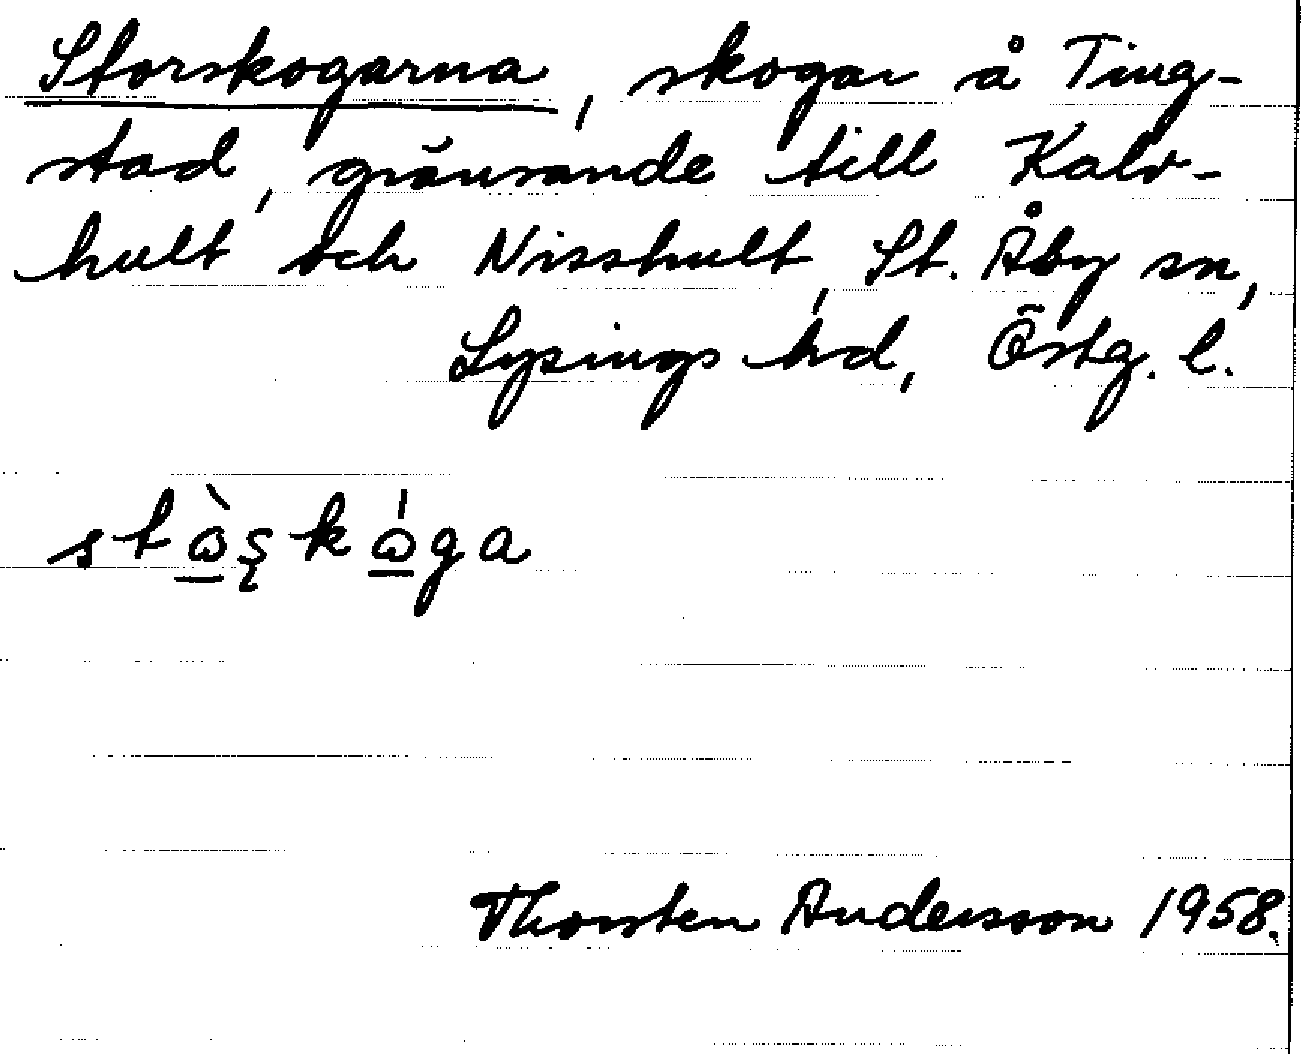 Storskogarna, skogar å Ting-
stad, gränsande till Kalv-
hult och Nisshult, St. Åby sn,
Lysings hd, Östg. l.
Thorsten Andersson 1958.